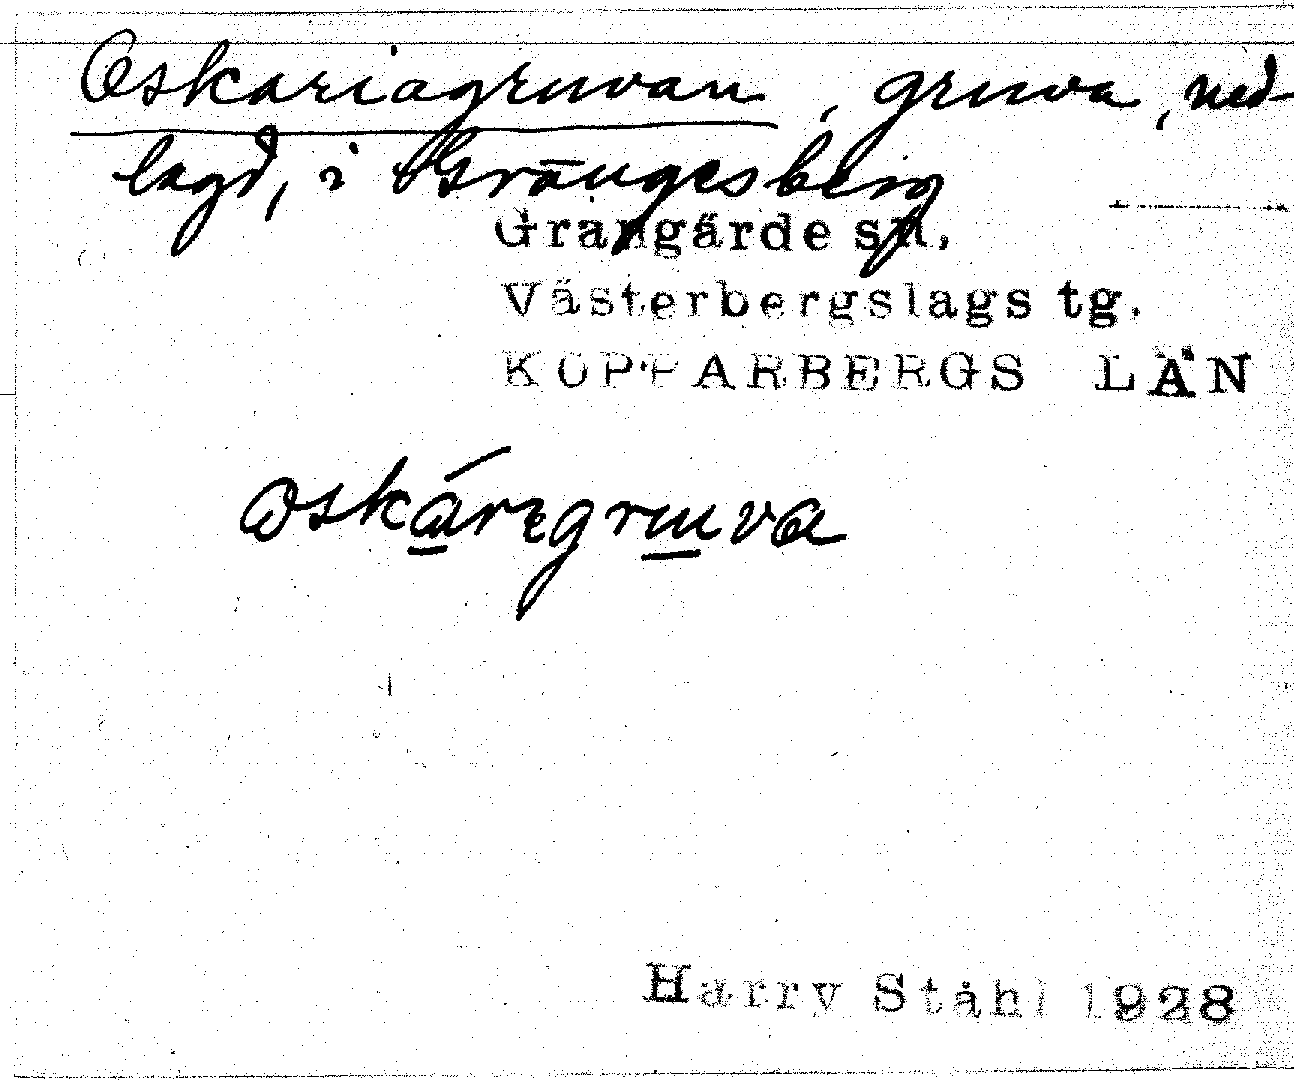 Oskariagruvan, gruva, ned-
lagd, i Grängesberg
Grangärde sn.
Västerbergslags tg.
KOPPARBERGS LÄN
oskáregruva
Harry Ståhl 1928